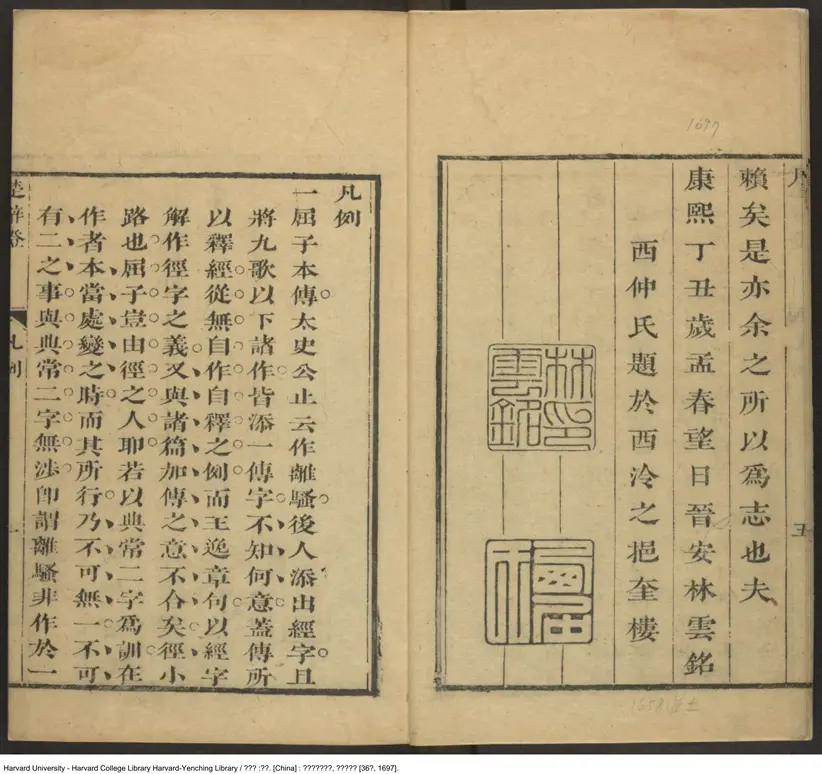 1697
序
賴矣是亦余之所以爲志也夫
康熙丁丑歲孟春望日晉安林雲銘
西仲氏題於西泠之挹奎樓
林印雲銘
西仲
五
1658進士
凡例
一屈子本傳太史公止云作離騷後人添出經字且
將九歌以下諸作皆添一傳字不知何意蓋傳所
以釋經從無自作自釋之例而王逸章句以經字
解作徑字之義又與諸篇加傳之意不合矣徑小
路也屈子豈由徑之人耶若以典常二字爲訓在
作者本當處變之時而其所行乃不可無一不可
有二之事與典常二字無涉即謂離騷非作於一
楚辭燈
凡例
一
Harvard University - Harvard College Library Harvard-Yenching Library / ??? :??. [China] : ???????, ????? [36?, 1697].